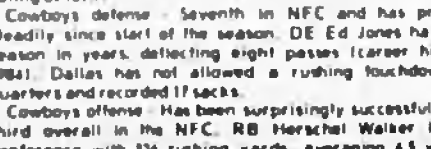 Cowboys defense - Seventh in NFC and has pr
eadily since start of the season. DE Ed Jones ha
eason in years, deflecting eight passes (career hi
984). Dallas has not allowed a rushing touchdow
uarters and recorded 17 sacks.
Cowboys offense - Has been surprisingly successful
hird overall in the NFC. RB Herschel Walker
onference with 326 rushing yards, averaging 4.5 y